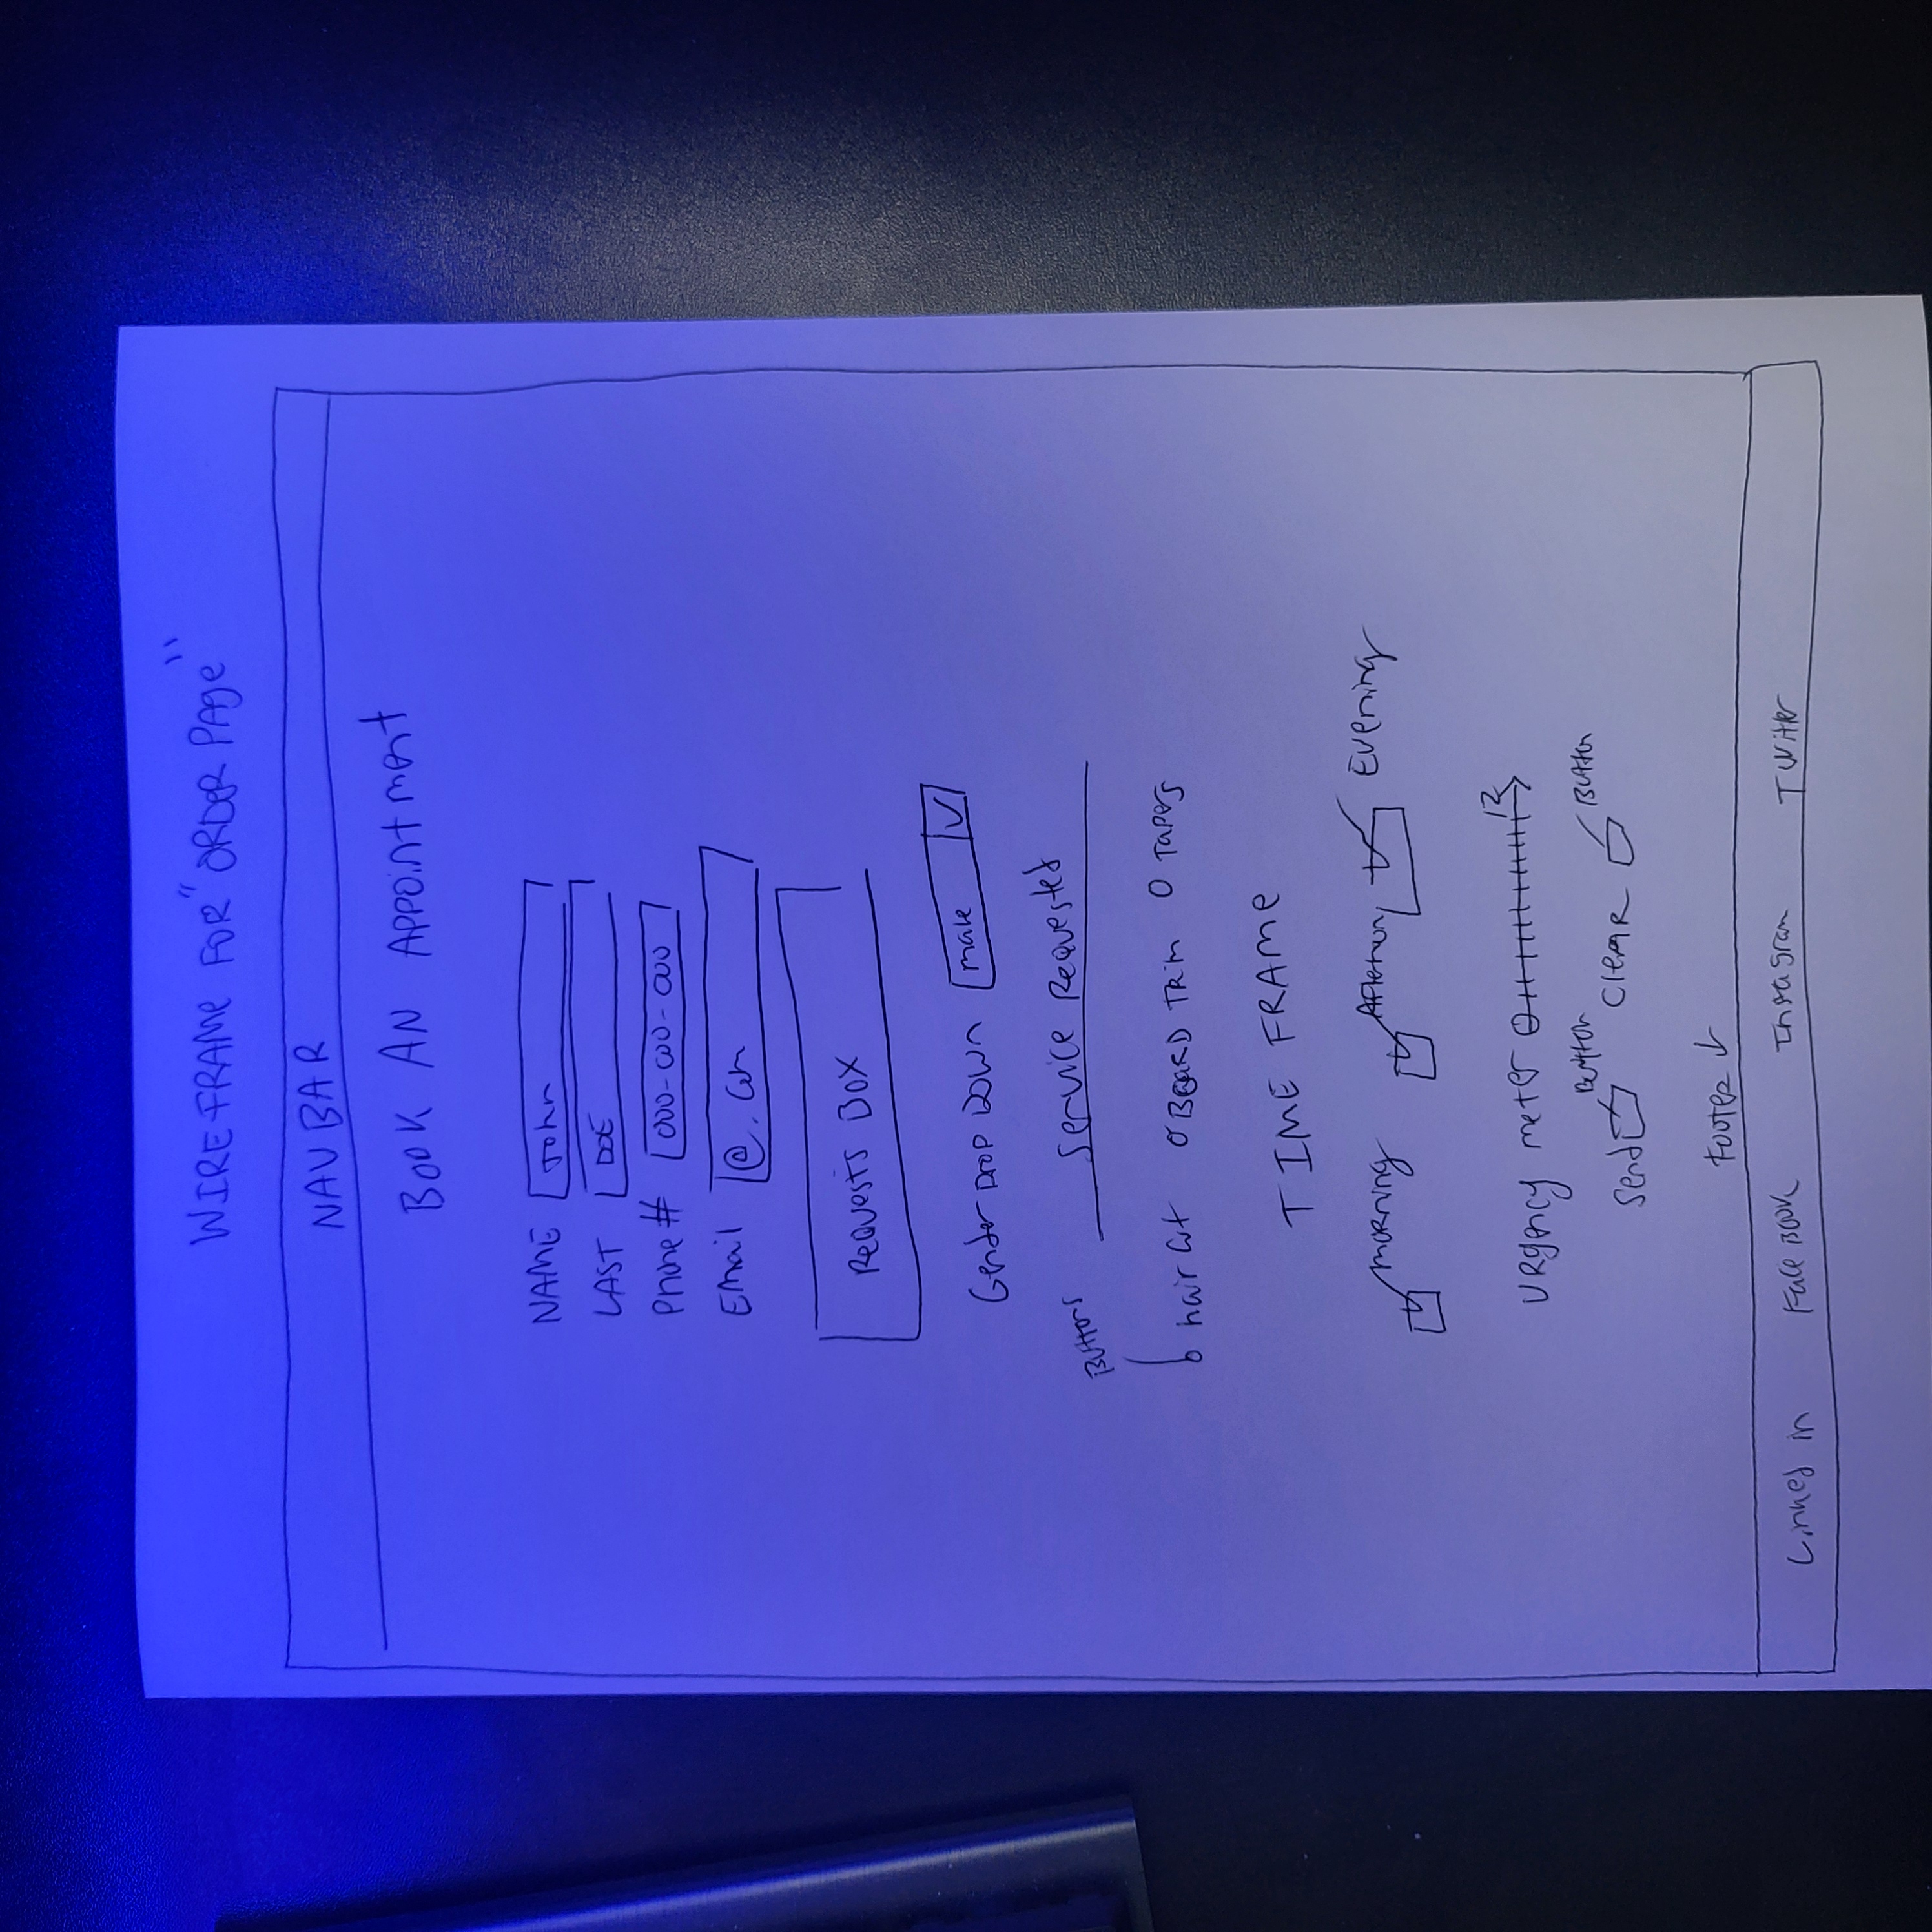 WIREFRAME FOR "ORDER PAge"
NAVBAR
BOOK AN APPOintment
NAME John
LAST DOE
Phone # 000-000-000
EMail @.com
ReQuests BOX
Gender DROP DOWN male
Service Requested
Buttons
hair Cut BEARD TRIM TAPers
TIME FRAMe
morning Afternoon Evening
URgency meter 0 12
Button Button
Send CleAR
FooteR ↓
Linked in FaceBOOK Instagram TWitter